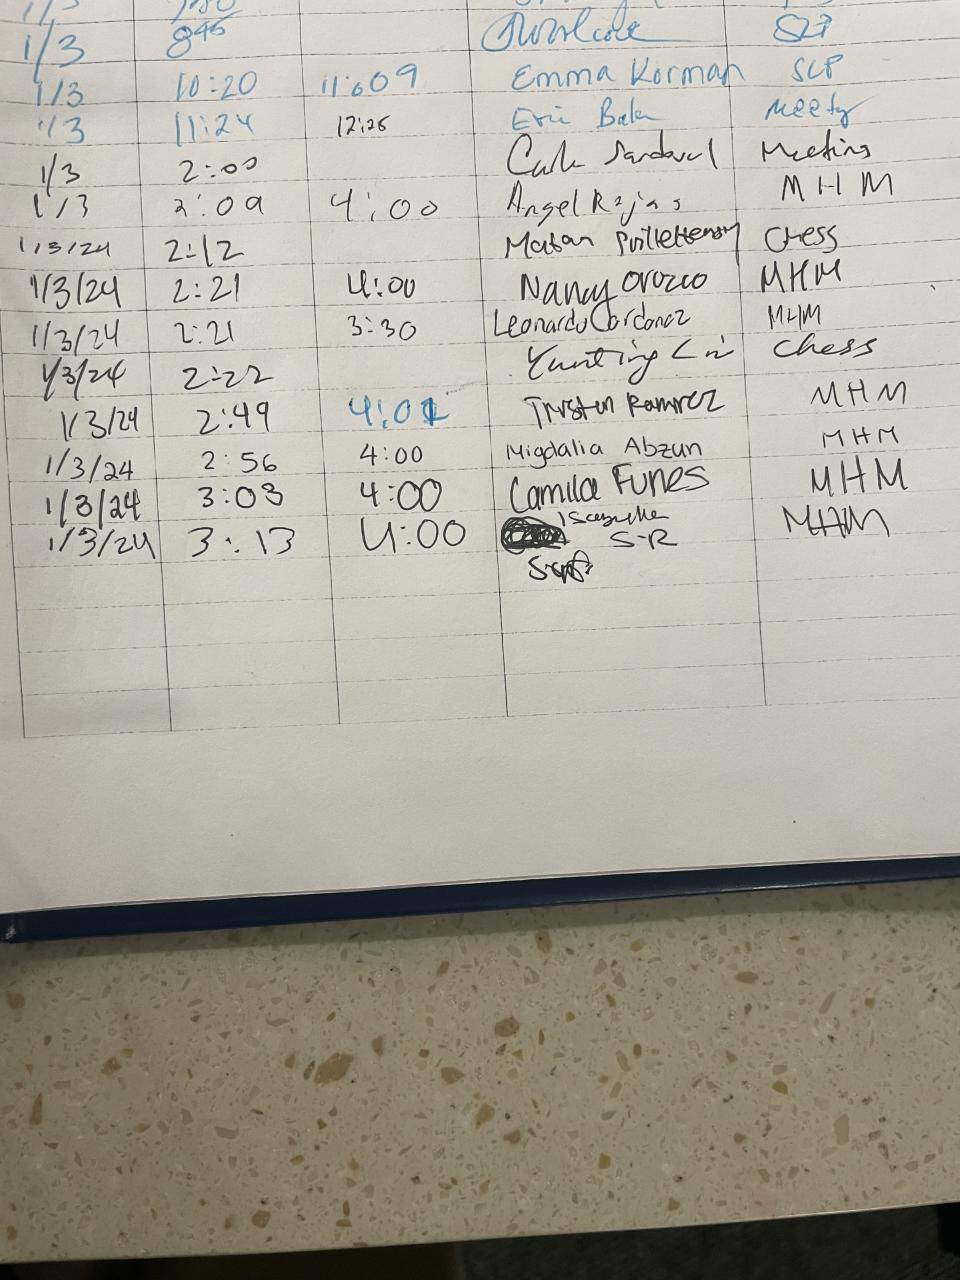 1/3 8:45
1/3 10:20 11:09 Emma Korman SCP
1/3 11:24 12:25 Eric
1/3 2:00 Sandoval Meeting
1/3 2:09 4:00 Angel Rojas MHM
1/3/24 2:12 Chess
1/3/24 2:21 4:00 Nancy Orozco MHM
1/3/24 2:21 3:30 Leonardo Cordonez MHM
1/3/24 2:22 Yunting Chess
1/3/24 2:49 4:01 Ramirez MHM
1/3/24 2:56 4:00 Migdalia Abzun MHM
1/3/24 3:03 4:00 Camila Funes MHM
1/3/24 3:13 4:00 S-R MHM